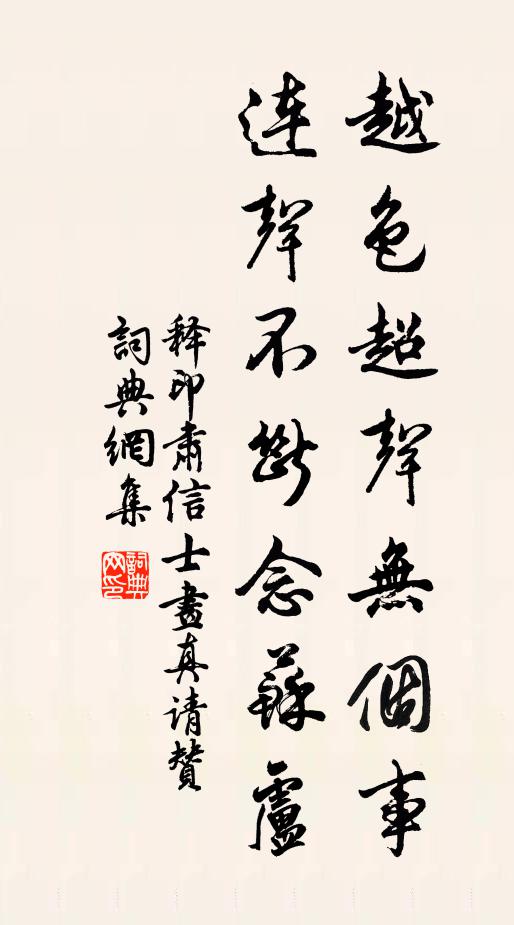 越色超聲無個事
連聲不斷念蘇盧
释印肅信士畫真请贊
詞典網集
詞典
网印